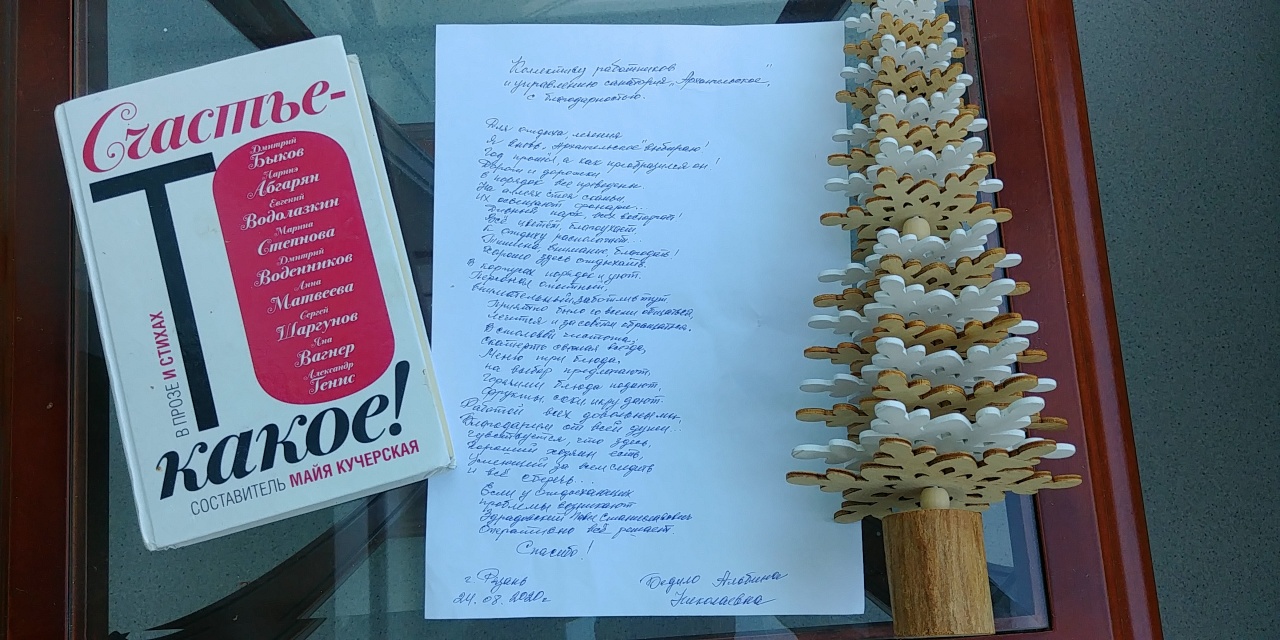 Счастье-
ТО
Дмитрий
Быков
Наринэ
Абгарян
Евгений
Водолазкин
Марина
Степнова
Дмитрий
Воденников
Анна
Матвеева
Сергей
Шаргунов
Яна
Вагнер
Александр
Генис
В ПРОЗЕ И СТИХАХ
какое!
СОСТАВИТЕЛЬ МАЙЯ КУЧЕРСКАЯ
Коллективу работников
и управлению санатория „Архангельское"
с благодарностью.
Для отдыха, лечения
Я вновь „Архангельское" выбираю!
Год прошёл, а как преобразился он!
Дороги и дорожки
в порядок все приведены.
На аллеях стоят скамьи,
Их освещают фонари..
парк
Всё цветёт, благоухает,
К отдыху располагает...
Тишина, внимание, благодать!
Хорошо здесь отдыхать.
В корпусах порядок и уют.
Персонал опытный,
внимательный, заботливый тут
Приятно было со всеми общаться,
Лечиться и за советом обращаться.
В столовой чистота,
Скатерть свежая всегда,
Меню три блюда
на выбор предлагают,
Горячими блюда подают,
Фрукты, соки, икру дают.
Работой всех довольны мы.
Благодарим от всей души...
Чувствуется, что здесь,
Хороший хозяин есть,
Умеющий за всем следить
и всё сберечь...
Если у отдыхающих
проблемы возникают
Станиславович
Оперативно всё решает.
Спасибо!
г. Рязань
24.08.2020г
Альбина
Николаевна